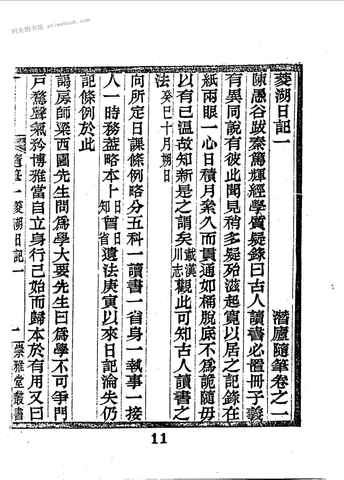 菱湖日記一
潛廬隨筆卷之一
陳愚谷跋秦篤輝經學質疑錄曰古人讀書必置冊子義
有異同說有彼此聞見稍多疑殆滋起寬以居之記錄在
紙兩眼一心日積月累久而貫通如桶脫底不爲詭隨毋
以有已溫故知新是之謂矣戴漢川志觀此可知古人讀書之
法癸巳十月朔日
向所定日課條例略分五科一讀書一省身一執事一接
人一時務葢略本卜日知曾日省遺法庚寅以來日記淪失仍
記條例於此
謁房師梁西園先生問爲學大要先生曰爲學不可爭門
戶騖聲氣矜博雅當自立身行己始而歸本於有用又曰
菱湖日記一
一
崇雅堂叢書
11